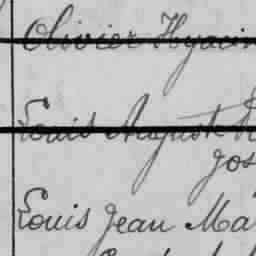 Olivier Hyacin
Louis August
Jos
Louis Jean Ma